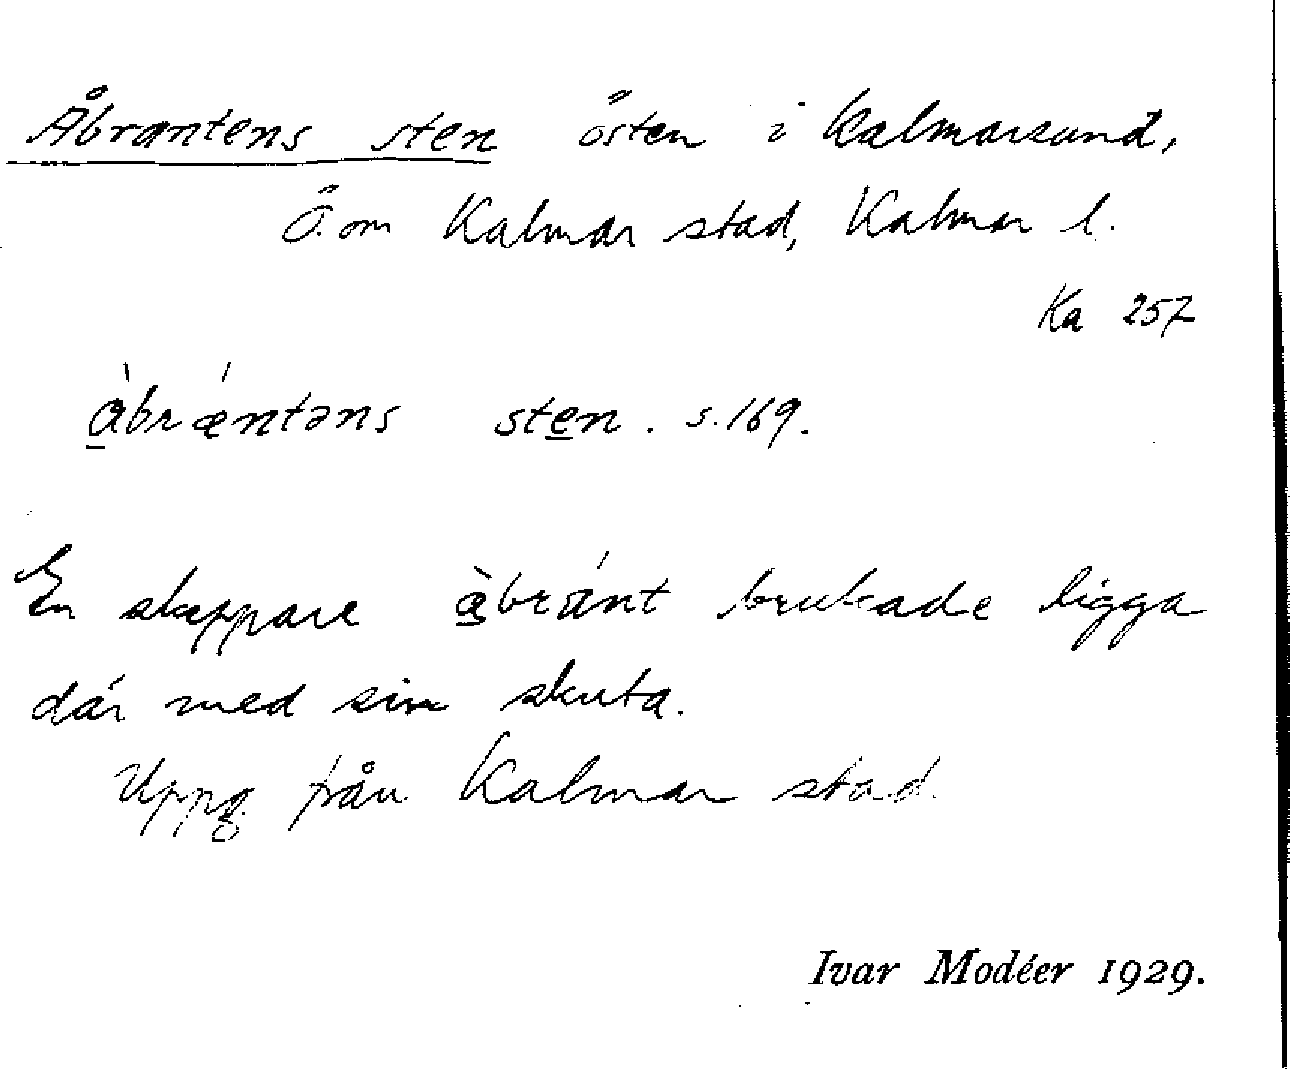 Åbrantens sten östen i Kalmarsund,
Ö. om Kalmar stad, Kalmar l.
Ka 257
àbrǽntəns sten. s. 169.
En skeppare àbránt brukade ligga
där med sin skuta.
Uppg. från Kalmar stad.
Ivar Modéer 1929.